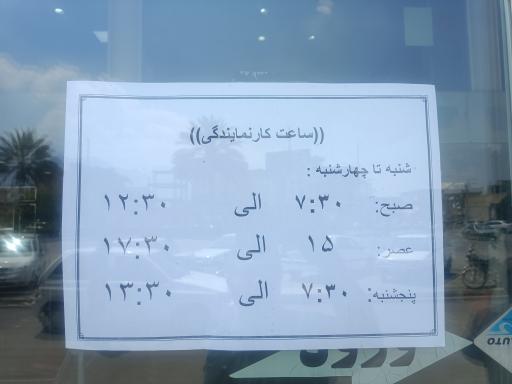 ((ساعت کارنمایندگی))
شنبه تا چهارشنبه :
صبح: ۷:۳۰ الی ۱۲:۳۰
عصر: ۱۵ الی ۱۷:۳۰
پنجشنبه: ۷:۳۰ الی ۱۳:۳۰
ورود
AUTO